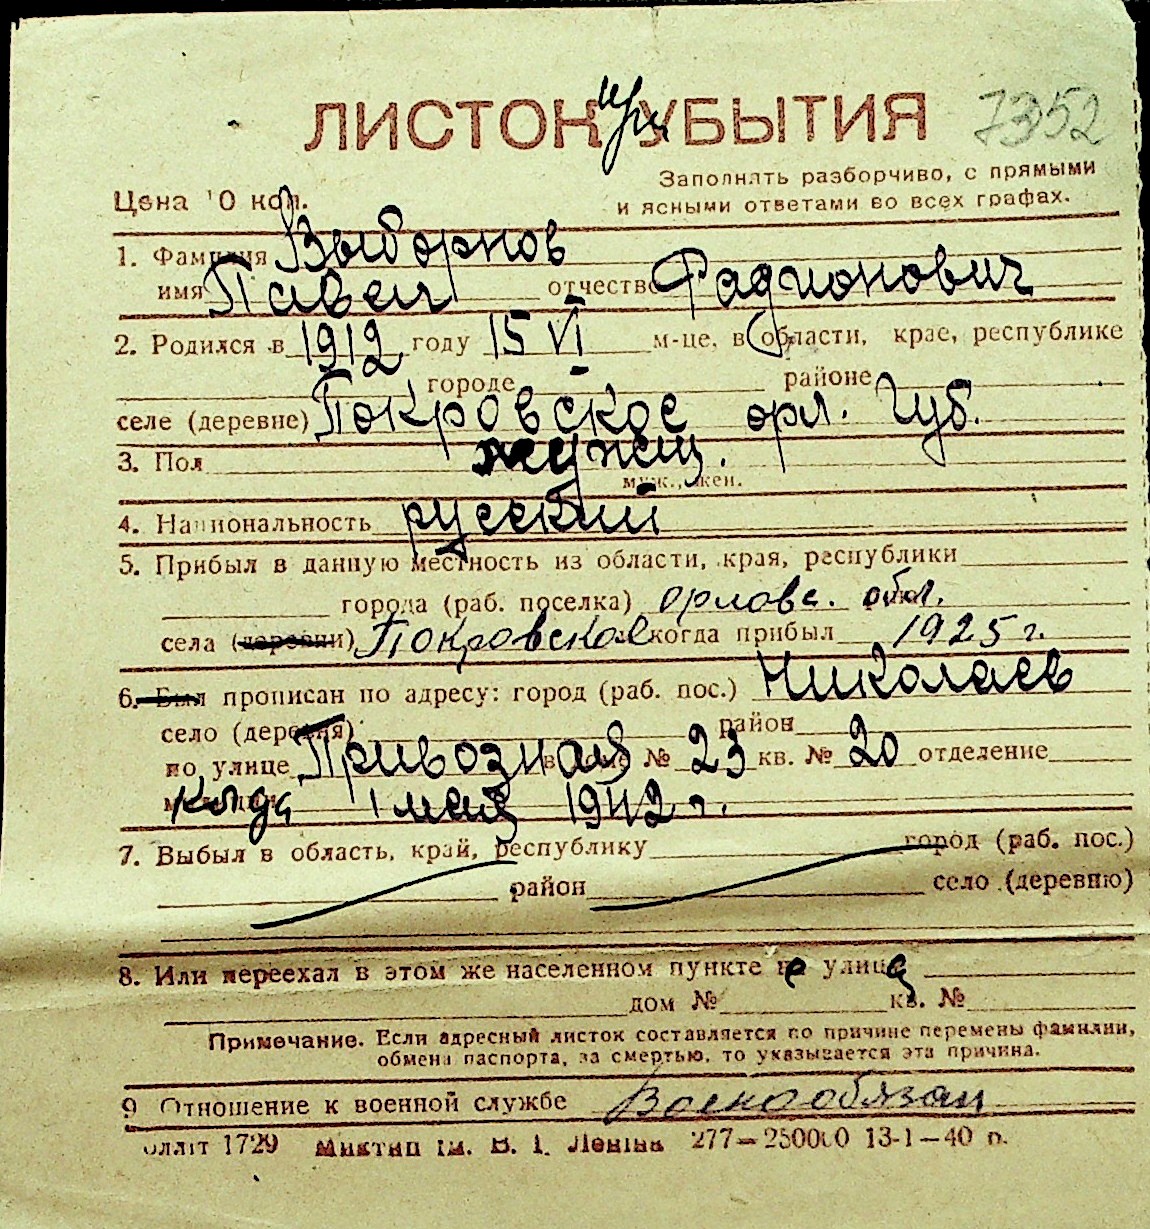 ЛИСТОК при УБЫТИЯ 7352
Заполнять разборчиво, с прямыми
Цена 10 коп. и ясными ответами во всех графах.
1. Фамилия Выборнов
имя Павел отчество Фадионович
2. Родился в 1912 году 15 VI м-це, в области, крае, республике
городе районе
селе (деревне) Покровское орл. губ.
3. Пол мужищ.
муж., жен.
4. Национальность русский
5. Прибыл в данную местность из области, края, республики
города (раб. поселка) орловс. обл.
села (деревни) Покровское когда прибыл 1925 г.
6. Был прописан по адресу: город (раб. пос.) Николаев
село (деревня) район
по улице Привозная № 23 кв. № 20 отделение
когда 1 мая 1942 г.
7. Выбыл в область, край, республику город (раб. пос.)
район село (деревню)
8. Или переехал в этом же населенном пункте на улица
дом № кв. №
Примечание. Если адресный листок составляется по причине перемены фамилии,
обмена паспорта, за смертью, то указывается эта причина.
9 Отношение к военной службе Военнообязан
1729 Миктип ім. В. І. Леніна 277—250000 13-1—40 р.